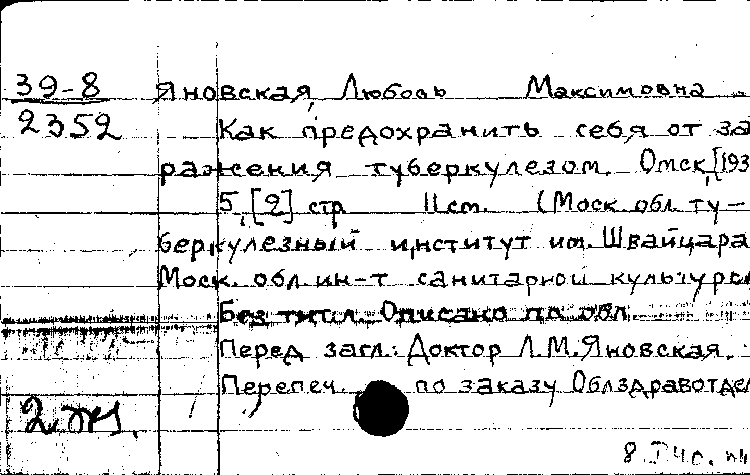 39-8 Яновская, Любовь Максимовна
2352 Как предохранить себя от за
ражения туберкулезом. Омск, [193
5, [2] стр 11 см. (Моск. обл. ту-
беркулезный институт им. Швайцара
Моск. обл. ин-т санитарной культуры
Без титл. Описано по обл.
Перед загл.: Доктор Л.М. Яновская.
Перепеч. по заказу Облздравотдел
2 экз.
8